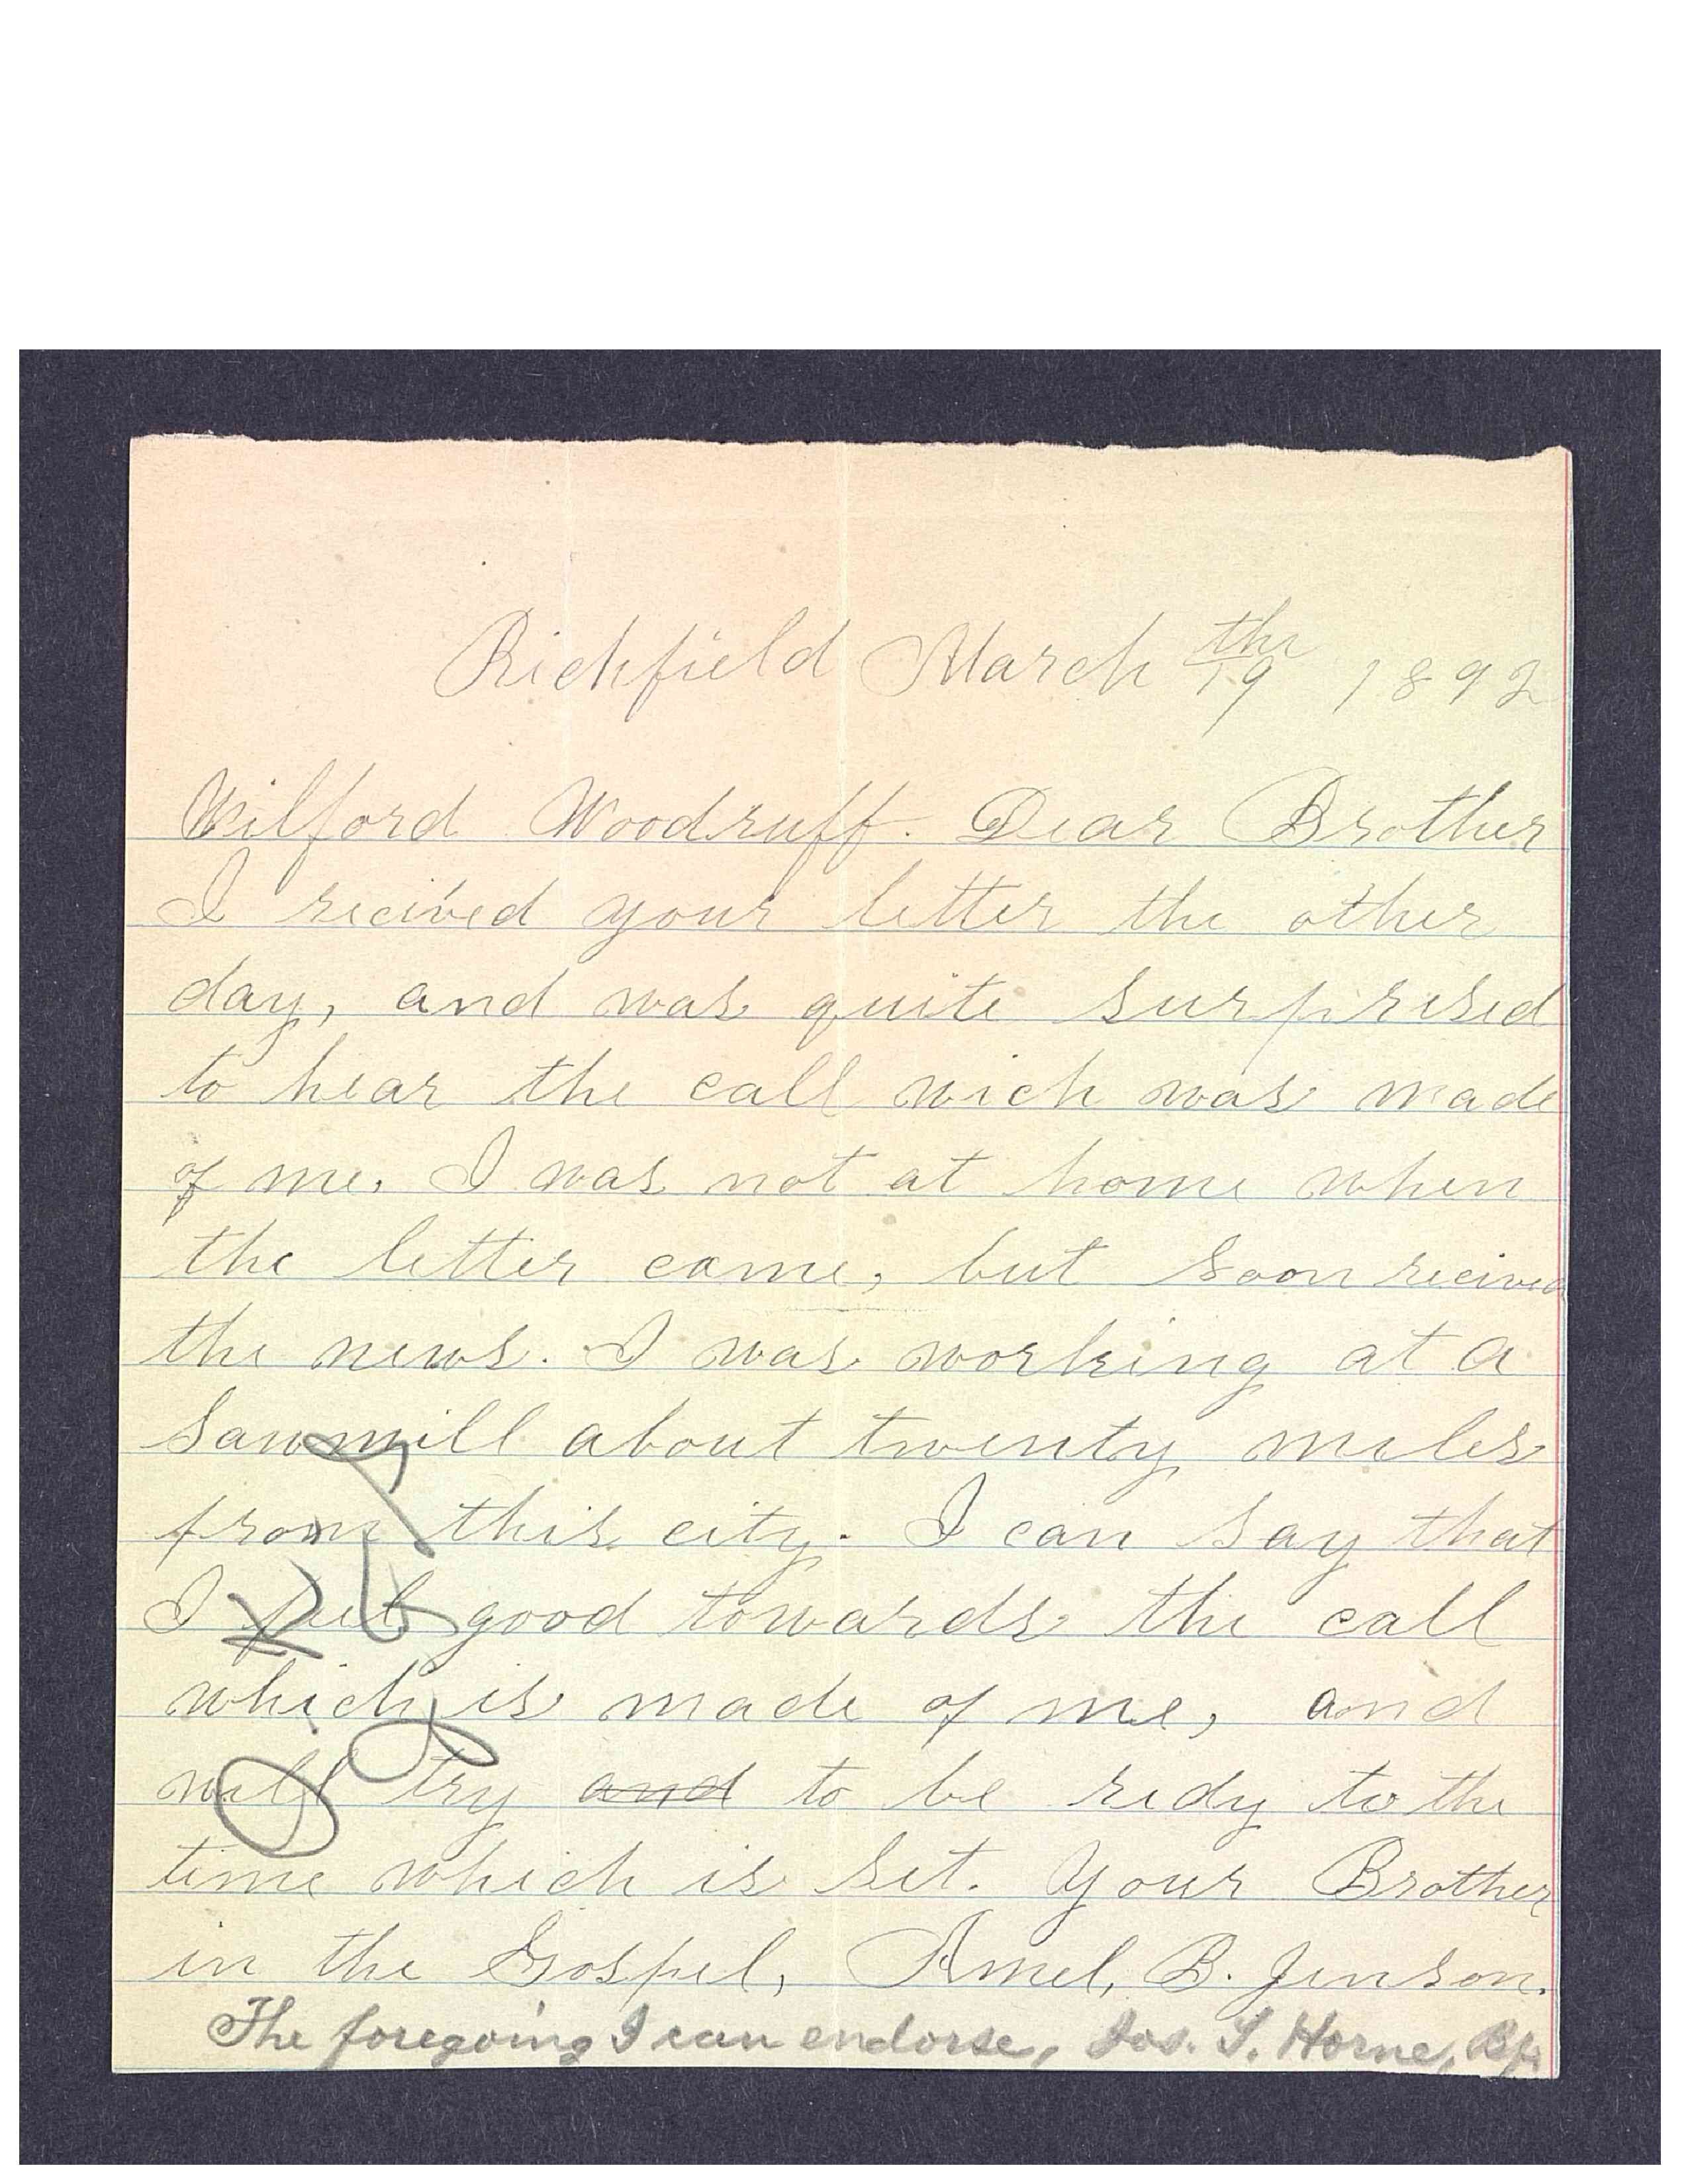 Richfield March 19th 1892
Wilford Woodruff. Dear Brother
I recived your letter the other
day, and was quite surprised
to hear the call wich was made
of me. I was not at home when
the letter came, but soon recived
the news. I was working at a
sawmill about twenty miles
from this city. I can say that
I feel good towards the call
which is made of me, and
will try and to be redy to the
time which is set. Your Brother
in the Gospel, Amel, B. Jenson.
The foregoing I can endorse, Jos. S. Horne, Bp.